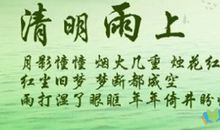 清明雨上
月影憧憧 烟火几重 烛花红
红尘旧梦 梦断都成空
雨打湿了眼眶 年年倚井盼